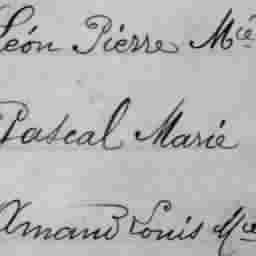 Léon Pierre Mie
Pascal Marie
Amand Louis Mie